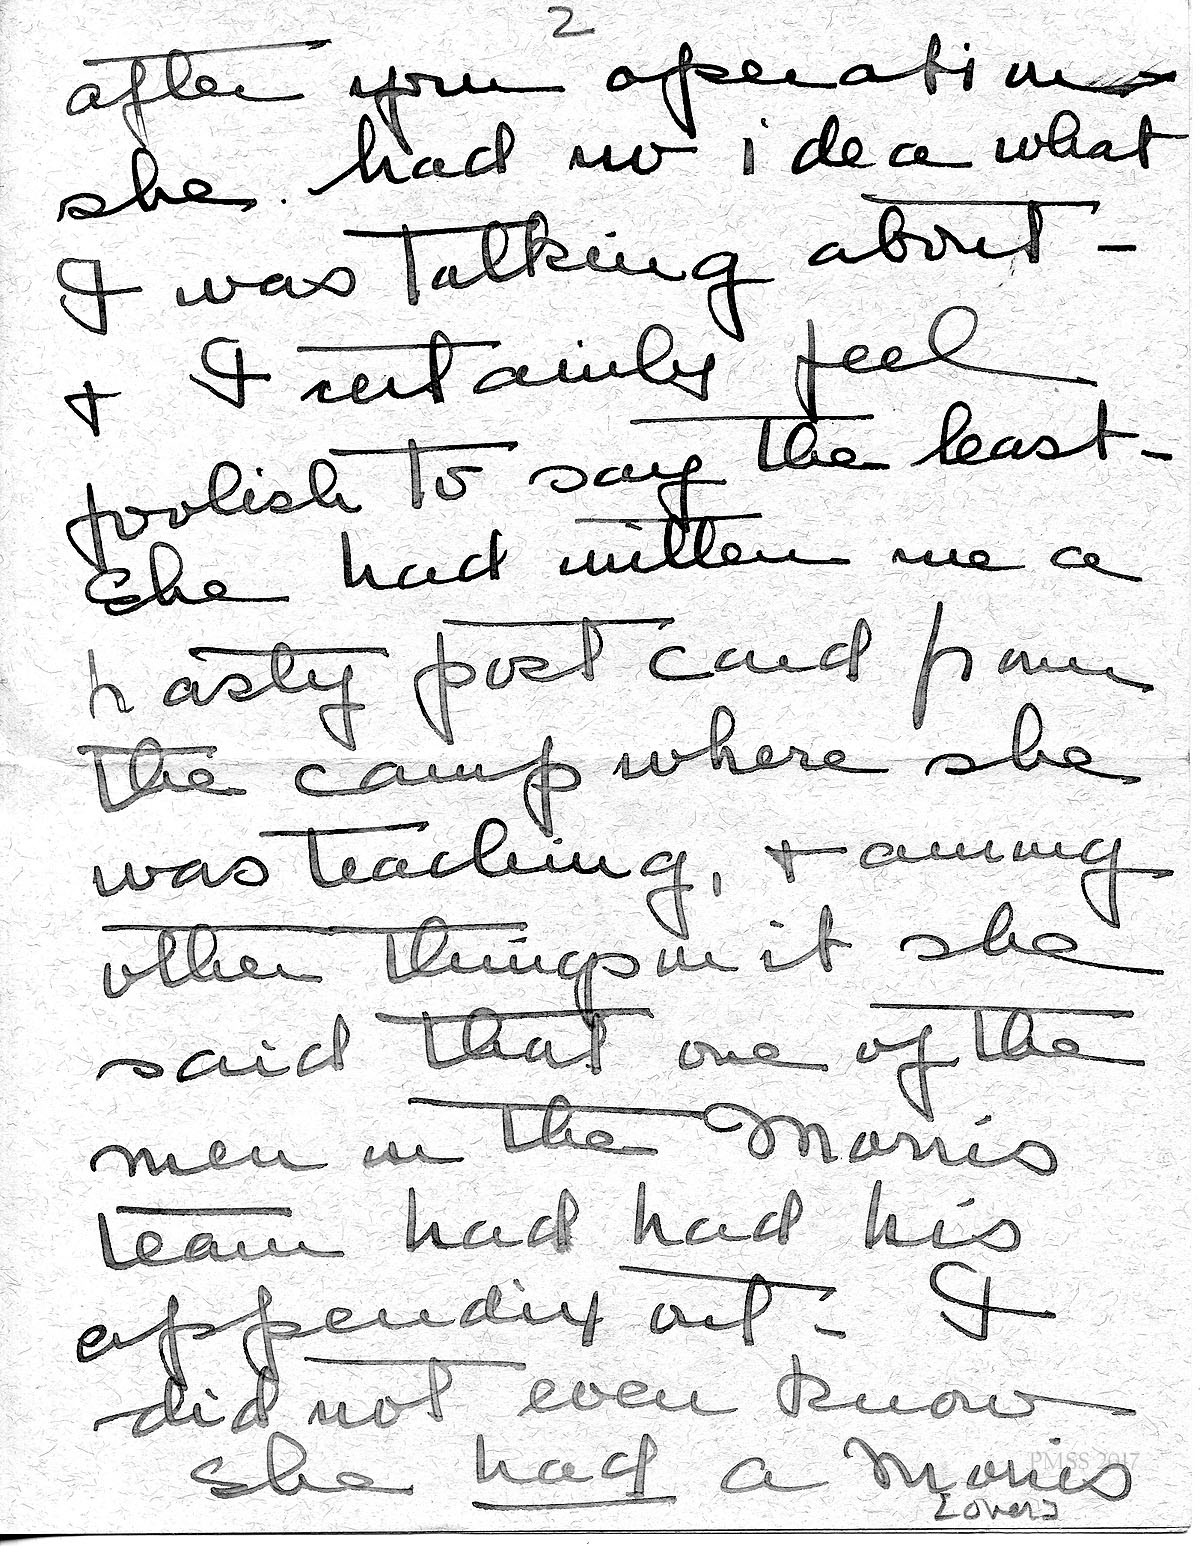 2
after your operation
she had no idea what
I was talking about -
+ I certainly feel
foolish to say the least -
She had written me a
hasty post card from
the camp where she
was teaching, + among
other things in it she
said that one of the
men in the Morris
team had had his
appendix out - I
did not even know
she had a Morris
PMSS 2017
[over]